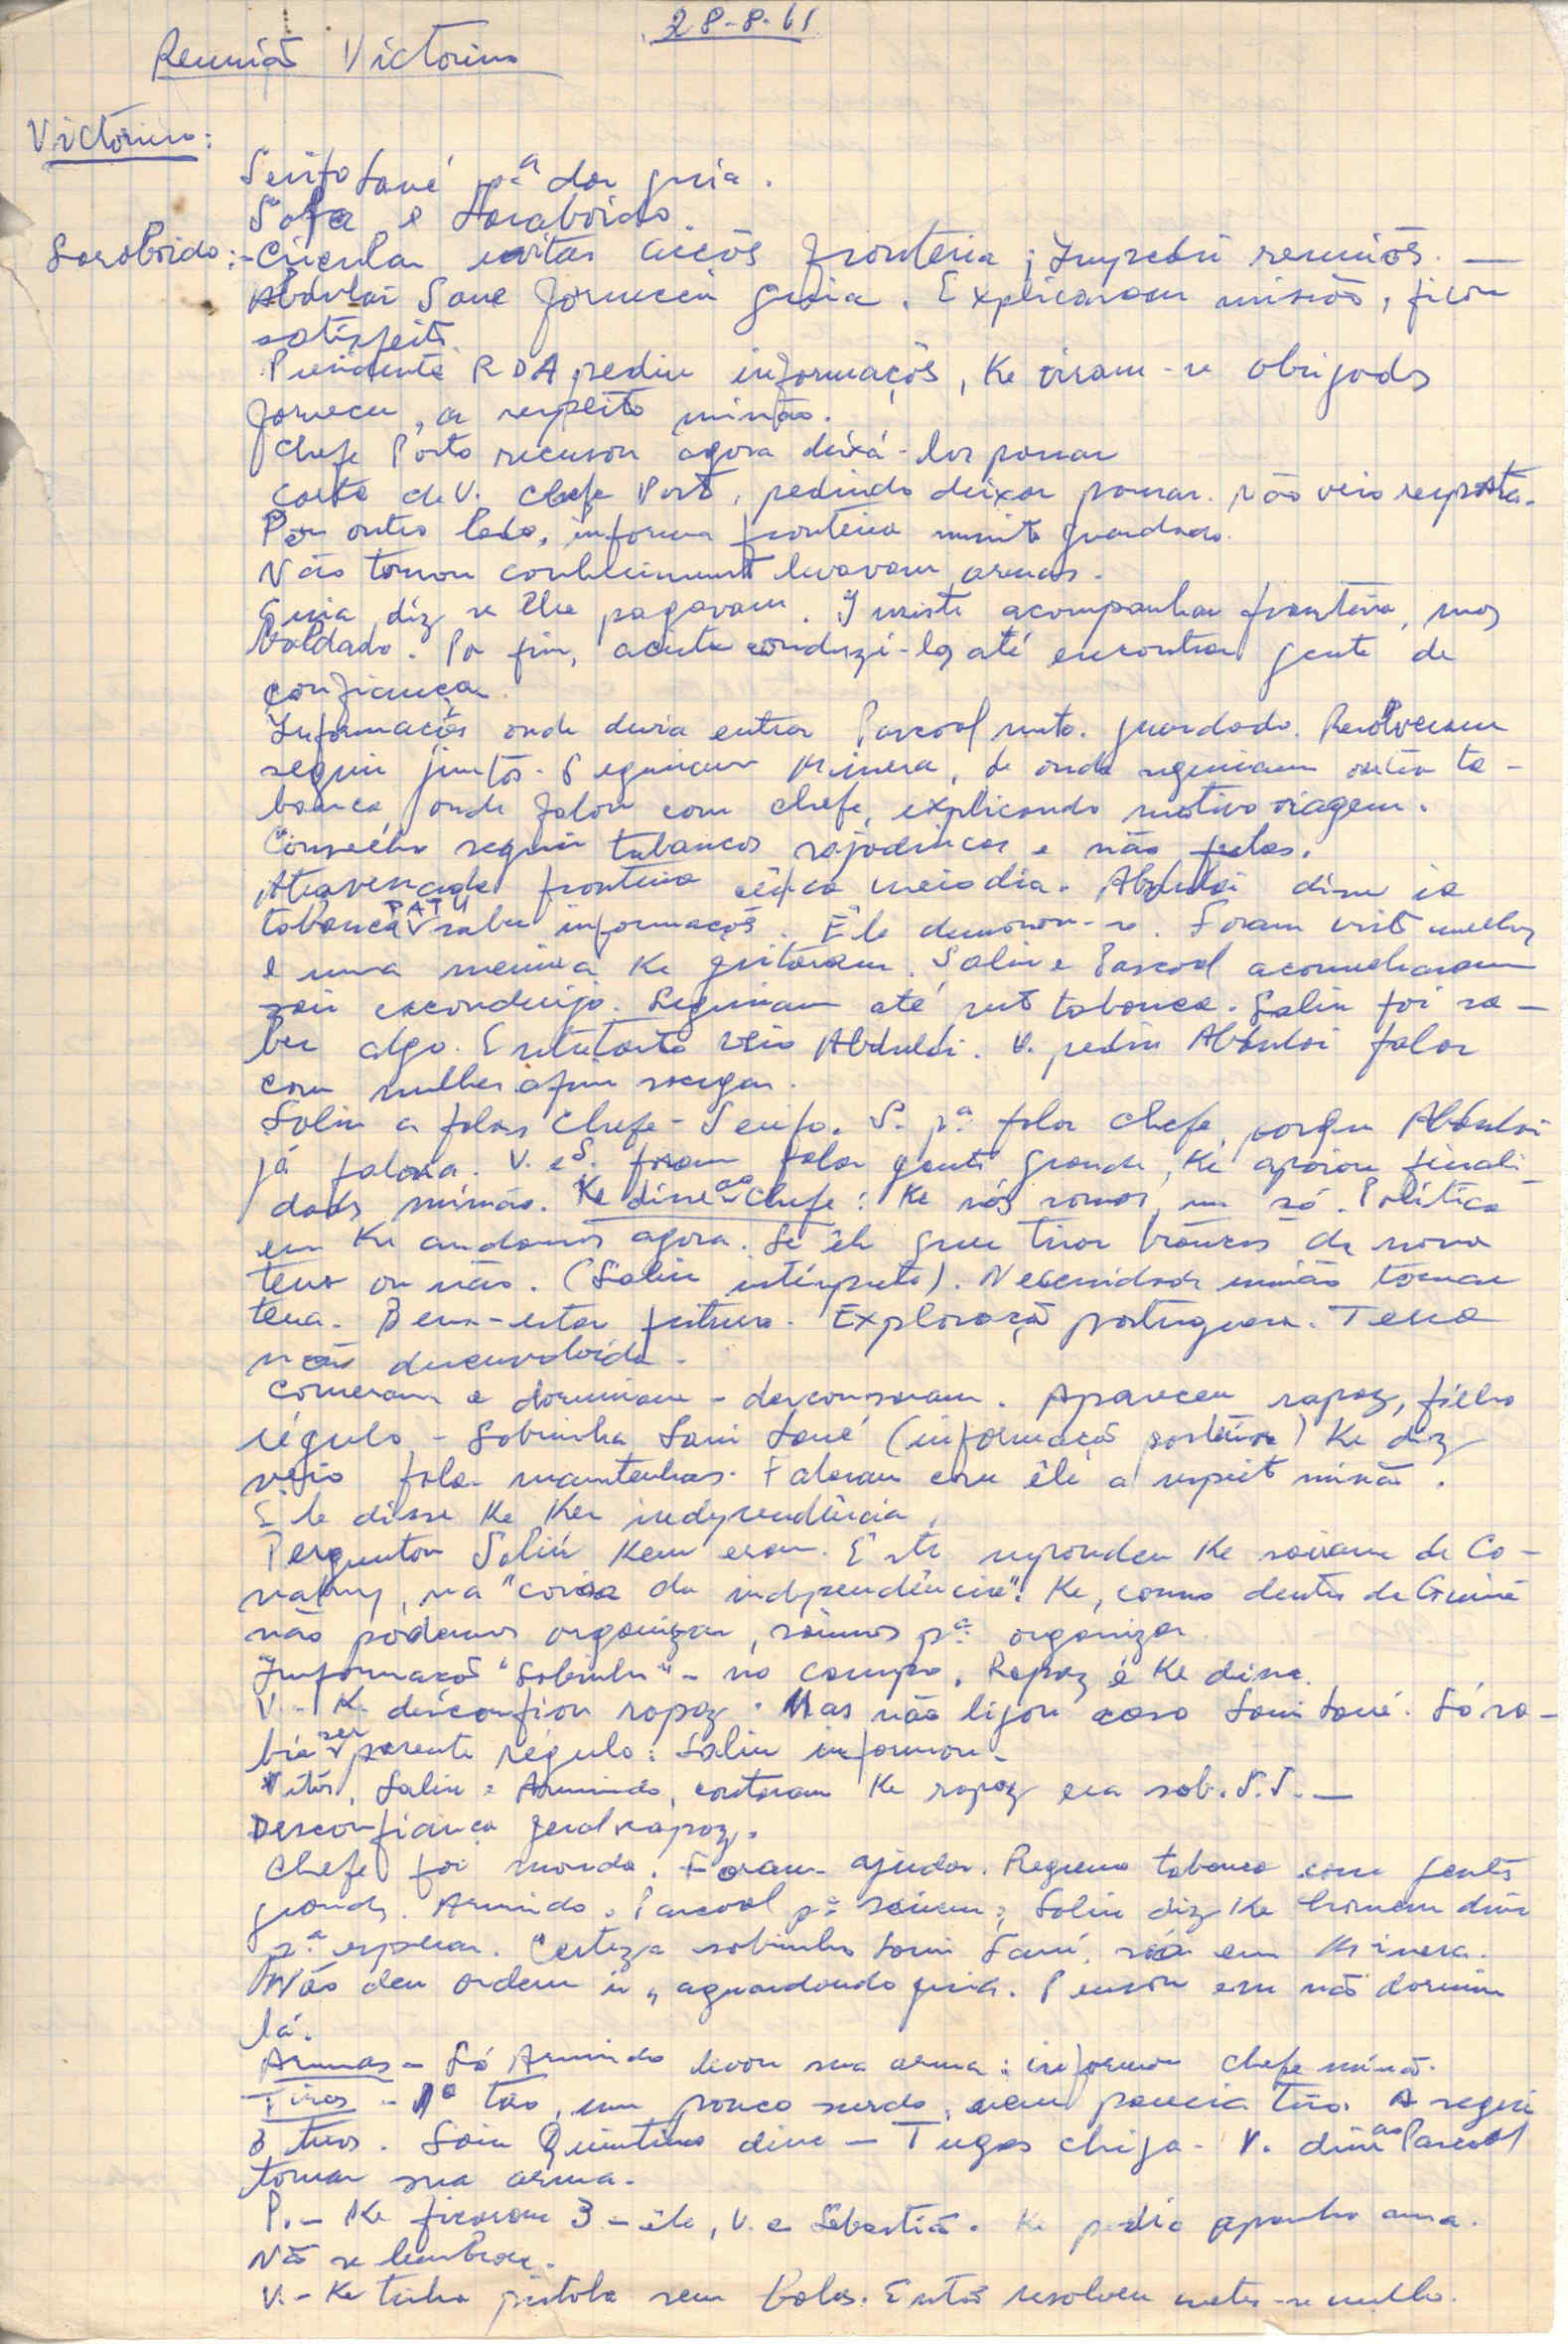 28-8-61
Reunião Victorino
Victorino:
Seifo Sané pª dar guia.
Safa e Saraboido.
Saraboido:- Circular evitar acçõs fronteira; Impedir reuniõs. —
Abdulai Sane forneceu guia. Explicaram missão, ficou
satisfeito.
Presidente RDA pediu informaçõs, ke viram-se obrigados
fornecer, a respeito missão.
Chefe Posto recusou agora deixá-los passar
Carta de V. Chefe Posto, pedindo deixar passar. Não veio resposta.
Por outro lado, informa fronteira muito guardada.
Não tomou conhecimento levavam armas.
Guia diz se lhe pagavam. Insiste acompanhar fronteira, mas
baldado. Por fim, aceita conduzi-los até encontrar gente de
confiança.
Informaçõs onde devia entrar Pascoal mto. guardado. Resolveram
seguir juntos. Seguiram Krinera, de onde seguiram outra ta-
banca, onde falou com chefe, explicando motivo viagem.
Conselho seguir tabancas sajadincas e não fulas.
Atravessada fronteira cêrca meio dia. Abdulai disse ia
tabanca PATU saber informaçõs. Êle demorou-se. Foram visto mulher
e uma menina ke gritaram. Saliu e Pascoal aconselharam
sair esconderijo. Seguiram até perto tabanca. Saliu foi sa-
ber algo. Entretanto veio Abdulai. V. pediu Abdulai falar
com mulher afim sossegar.
Saliu a falar Chefe - Seifo. S. pª falar chefe, porque Abdulai
já falara. V. e S. foram falar gente grande, ke apoiou finali-
dade missão. Ke disse ao Chefe: Ke nós somos um só. Política
em ke andamos agora. Se êle quer tirar brancos da nossa
terra ou não. (Saliu intérprete). Necessidade união tomar
terra. Bem-estar futuro. Exploração portuguesa. Terra
não desenvolvida.
Comeram e dormiram - descansaram. Apareceu rapaz, filho
régulo - Sobrinho Sani Sané (informação posterior) ke diz
veio falar mantenhas. Falaram com êle a respeito missão.
Êle disse ke ker independência.
Perguntou Saliú kem eram. Este respondeu ke saíram de Co-
nakry, na "coisa da independência". Ke, como dentro da Guiné
não podemos organizar, saímos pª organizar.
Informação "Sobrinho" - no campo. Rapaz é ke disse.
V. - Ke desconfiou rapaz. Mas não ligou caso Sani Sané. Só sa-
bia ser parente régulo: Saliu informou.
Vitor, Saliu e Armindo, contaram ke rapaz era sob. S.S. —
Desconfiança geral rapaz.
Chefe foi morada. Foram ajudar. Pequena tabanca com gente
grande. Armindo e Pascoal pª saírem; Saliu diz ke homem disse
pª esperar. Certeza sobrinho Sani Sané, só em Krinera.
Não deu ordem ir, aguardando guia. Pensou em não dormir
lá.
Armas - Só Armindo levou sua arma: informou chefe missão.
Tiros - 1º tiro, um pouco surdo, nem parecia tiro. A seguir
3 tiros. Saiu Quintino disse - Tugas chiga. V. disse ao Pascoal
tomar sua arma.
P. - Ke ficaram 3 - êle, V. e Sebastião. Ke pedia apanhar arma.
Não se lembrou.
V. - Ke tinha pistola sem balas. Então resolveu meter-se milho.